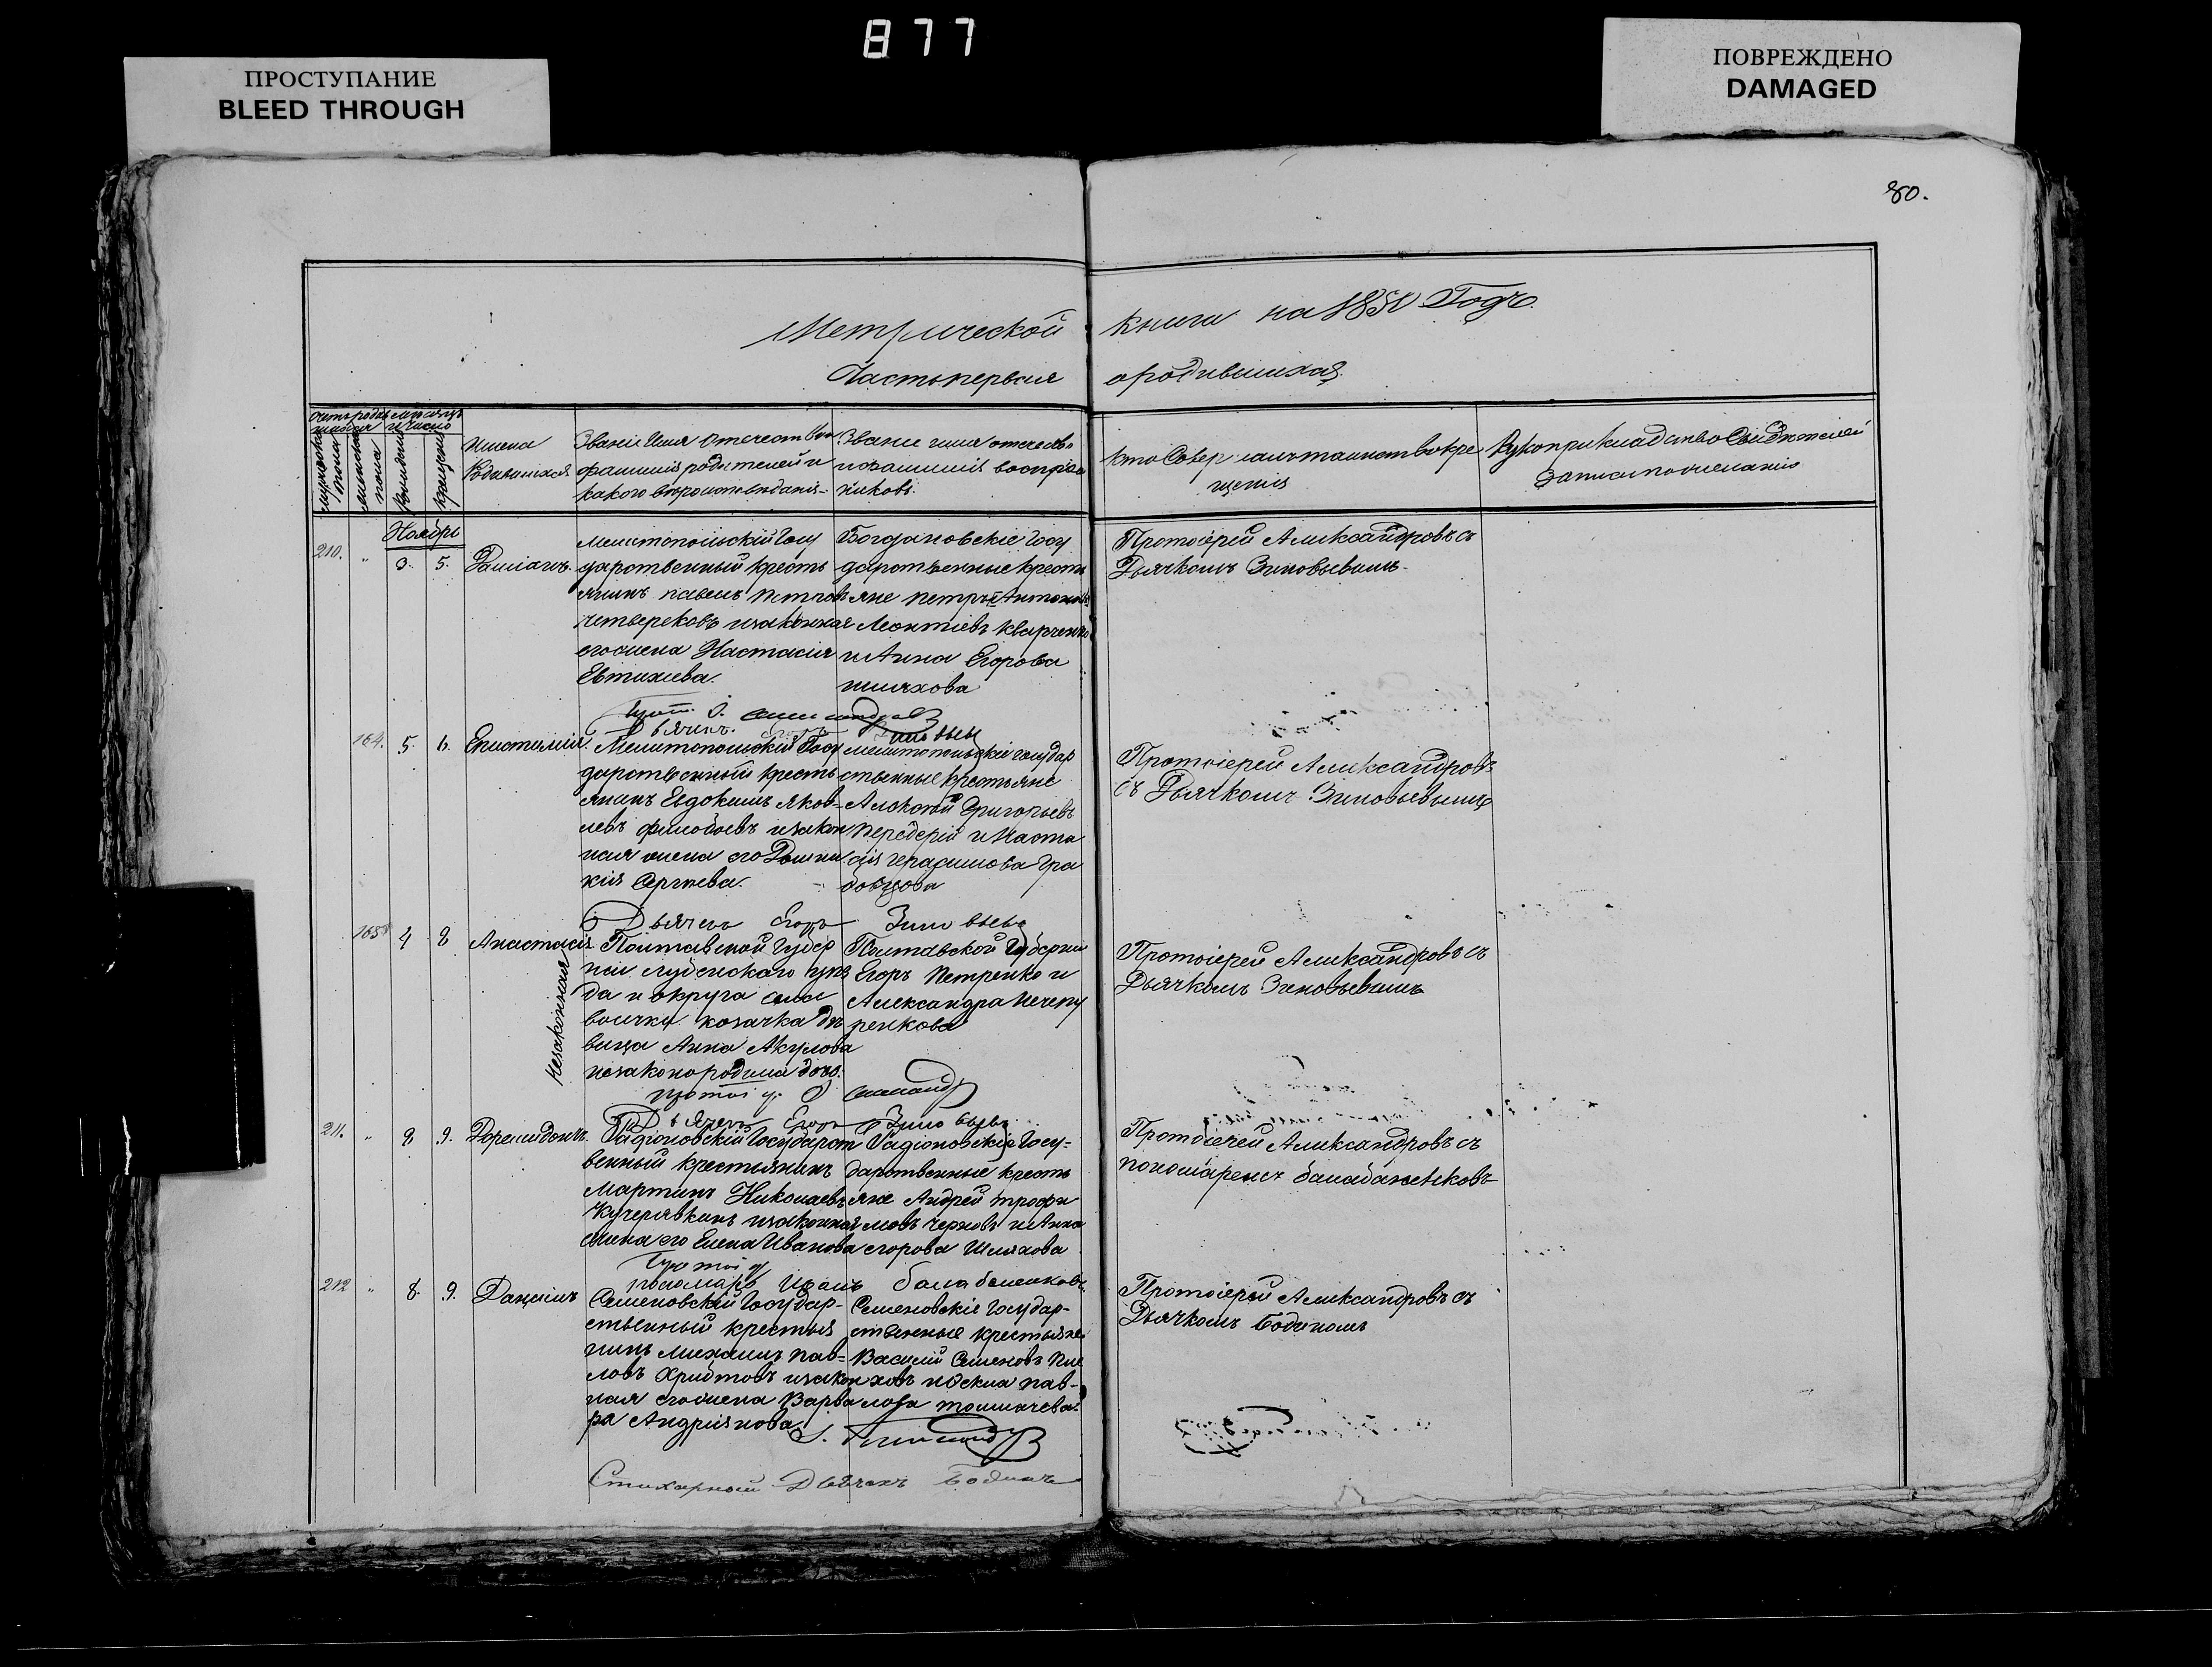 877
ПРОСТУПАНИЕ
BLEED THROUGH
ПОВРЕЖДЕНО
DAMAGED
80.
Метрической книги на 1850 Годъ.
Часть первая о родившихся.
мужеска пола
женска пола
рожденія
крещенія
Имена
Родившихся
Званіе Имя Отечество
фамилія родителей и
какого вероисповеданія
Званіе имя отечество
и фамилія воспріем
никовъ.
Кто Совершалъ таинство кре
щенія
Рукоприкладство Свидетелей
записи по желанію
Ноябрь
210. " 3. 5.
Мелитопольскій Госу
дарственный кресть
янинъ павелъ петровъ
Четвериковъ и законная
его жена Настасия
Евтихиева.
Богдановскіе Госу
дарственные кресть
яне петръ Антоновъ
Леонтіевъ Кварченко
и Анна Егорова
шляхова
Протоіерей Александровъ съ
Дьячкомъ Зиновьевымъ
Дьячекъ
164. 5. 6. Епистимия.
Мелитопольскій Госу
дарственный кресть
янинъ Евдокимъ Яков=
левъ и закон
ная жена его Домни
кія Сергеева.
мелитопольскіе государ
ственные крестьяне
Алексей Григорьевъ
Передерій и Наста
сія герасимова Гра
бовцова
Протоіерей Александровъ
съ Дьячкомъ Зиновьевымъ
Дьячекъ Егоръ Зиновьевъ
165 4 8 Анастасія
Незаконная
Полтавской Губер
ніи лубенскаго уез
да и округа села
козачка де
вица Анна Акулова
незаконородила дочь.
Полтавской Губерніи
Егоръ Петренко и
Александра Чечепу
ренкова
Протоіерей Александровъ съ
Дьячкомъ Зиновьевымъ
Дьячекъ Егоръ Зиновьевъ
211. " 8. 9. Дорелидонъ.
Радіоновскій Государст
венный крестьянинъ
Мартинъ Николаевъ
Кучерявкинъ и законная
жена его Елена Иванова
Радіоновскіе Госу-
дарственные кресть
яне Андрей трофи
мовъ Черновъ и Анна
егорова Шляхова
Протоіерей Александровъ съ
пономаремъ балабаженковъ
пономарь Иванъ
212 " 8. 9. Даніилъ
Семеновскій Государ-
ственный крестья
нинъ Михаилъ пав=
ловъ Христовъ и закон
ная его жена Варва
ра Андріянова
Семеновскіе Государ-
ственные крестьяне
Василій Семеновъ
ховъ и Фекла пав-
лова толмачева.
Протоіерей Александровъ съ
Дьячкомъ Бодяномъ
Стихарный Дьячекъ Бодянъ